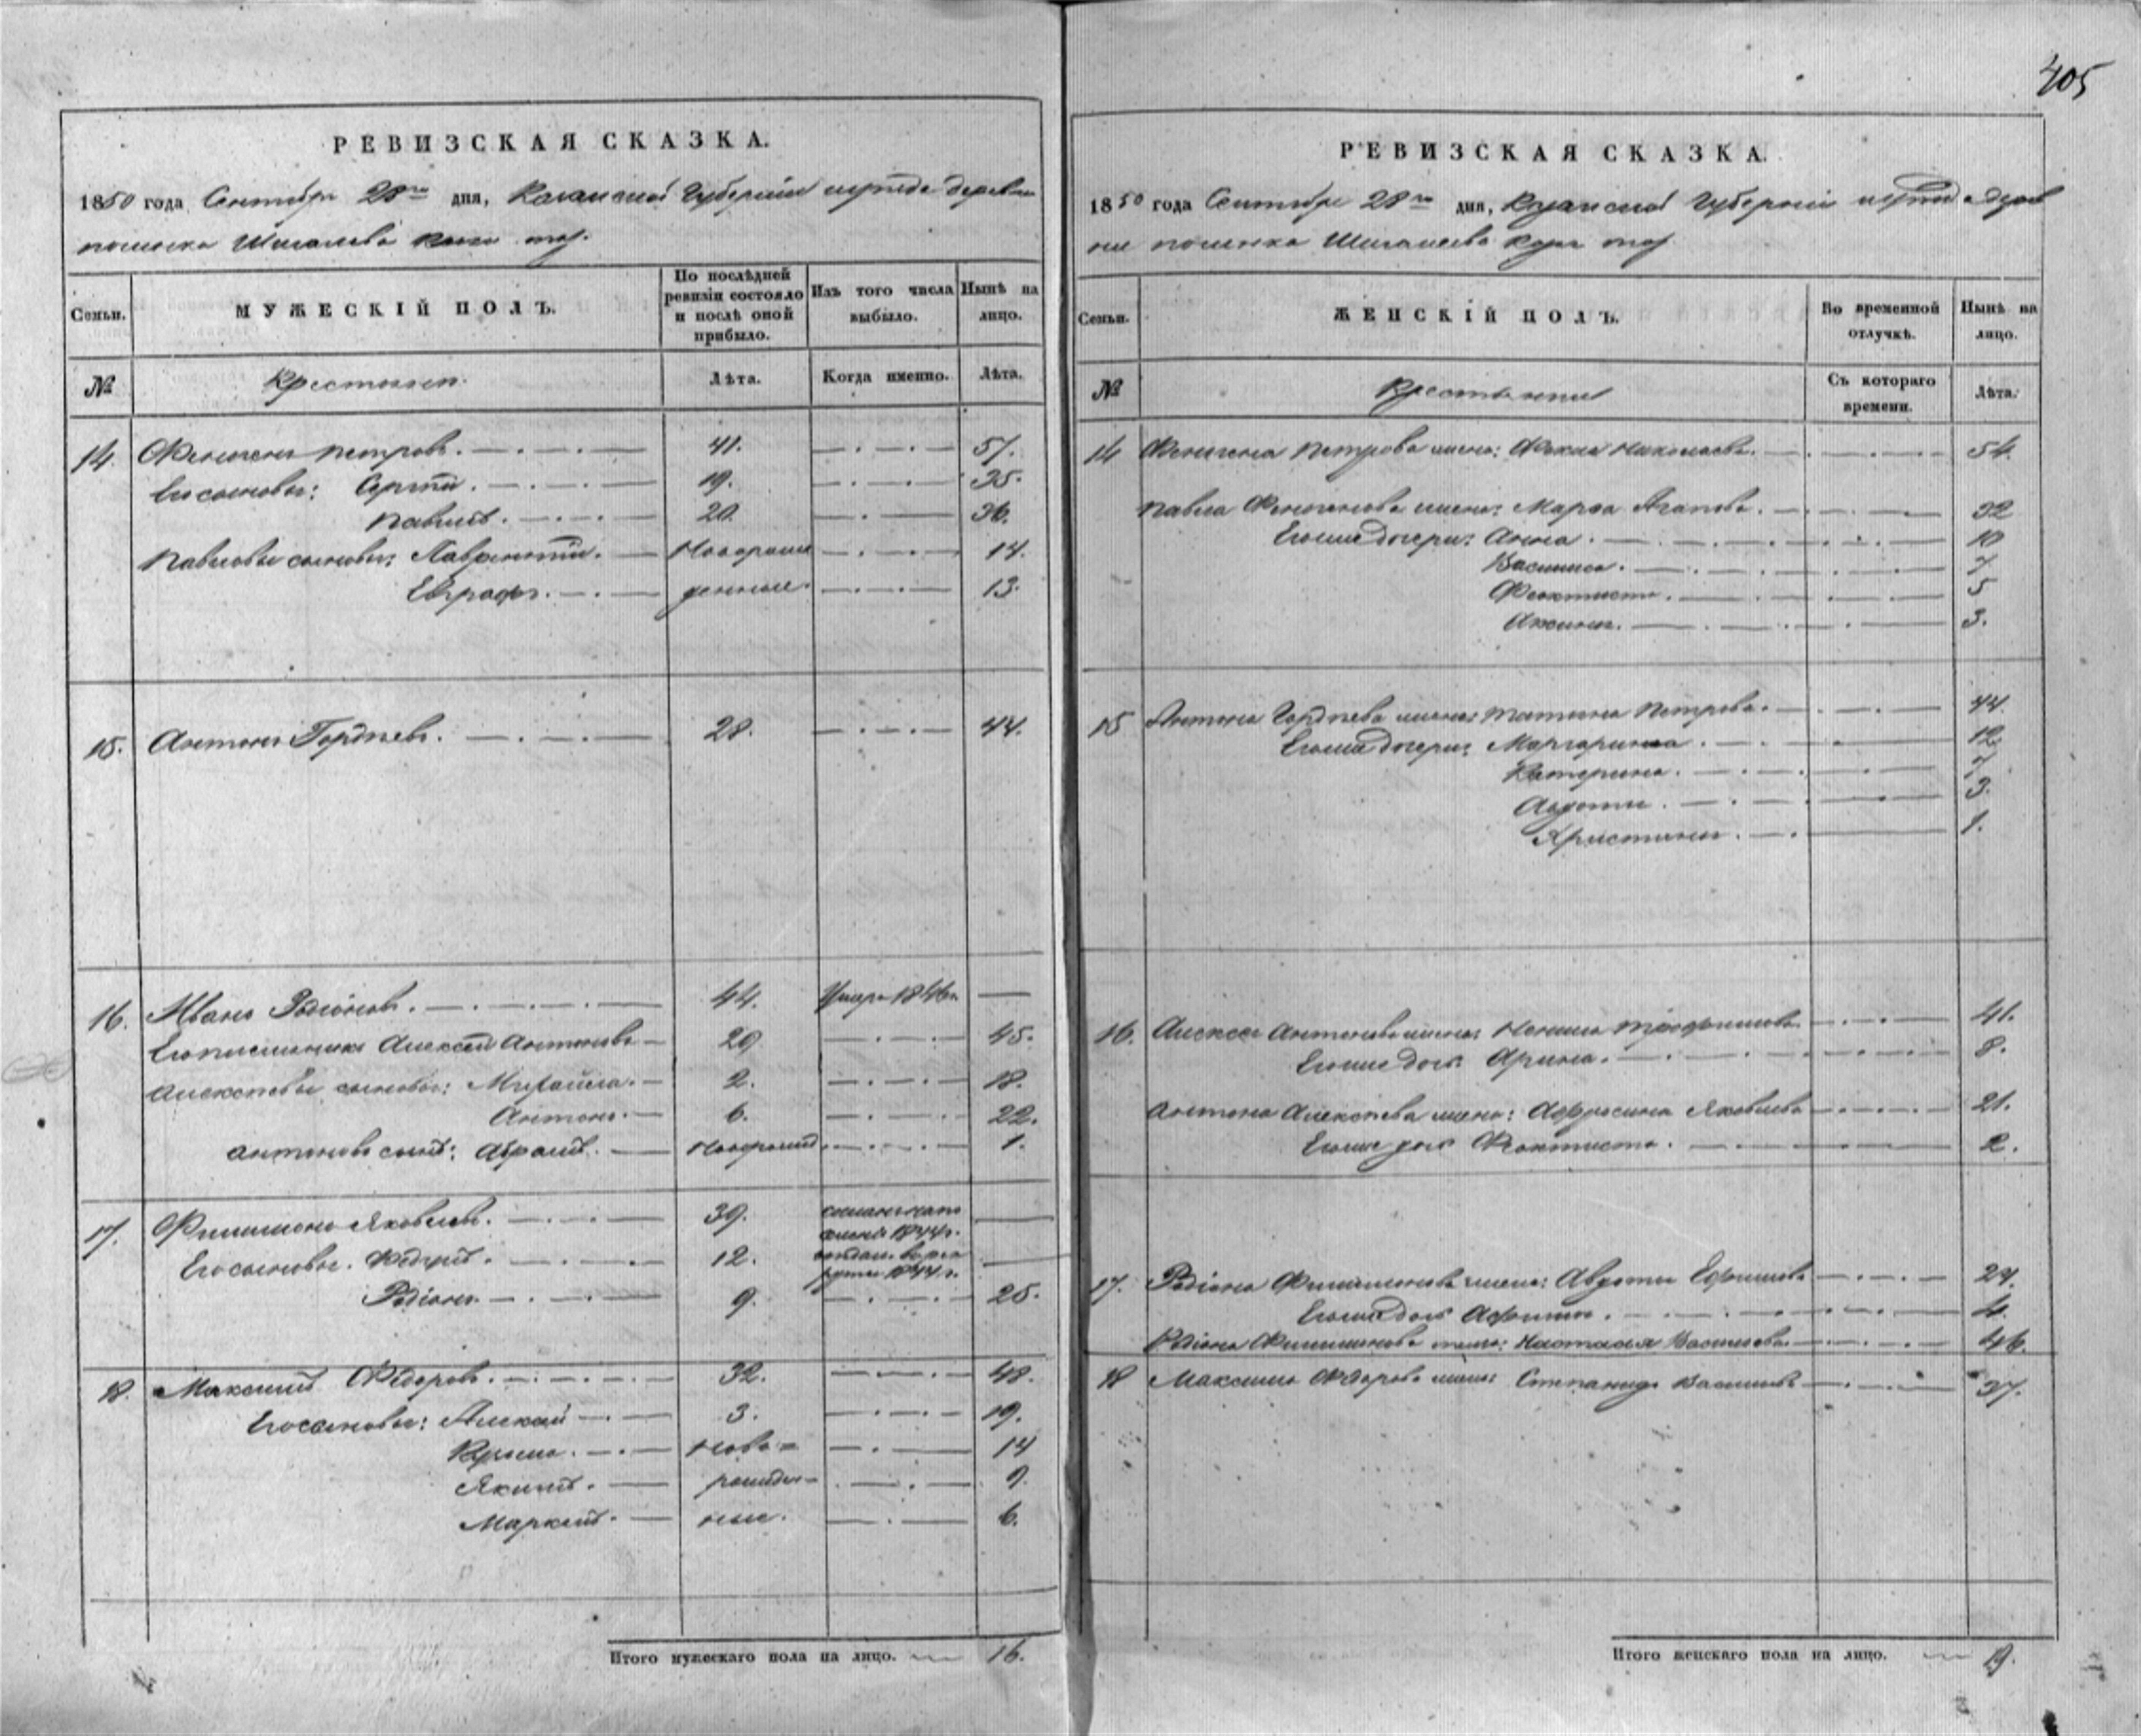 405
РЕВИЗСКАЯ СКАЗКА.
1850 года Сентября 28го дня, Казанской Губернии деревни
починка Шигалева тож.
Семьи. МУЖЕСКІЙ ПОЛЪ. По послѣдней ревизіи состояло и послѣ оной прибыло. Изъ того числа выбыло. Нынѣ на лицо.
№ Крестьяне. Лѣта. Когда именно. Лѣта.
14. Феногенъ Петровъ. 41. 57.
Его сыновья: Сергѣй. 19. 35.
Павелъ. 20. 36.
Павловы сыновья: Лаврентій. Новорож 14.
Евграфъ. денные. 13.
15. Антонъ Гордѣевъ. 28. 44.
16. Иванъ Родіоновъ. 44. Умеръ 1846го
Его племянникъ Алексѣй Антоновъ 29 45.
Алексѣевы сыновья: Михайла. 2. 18.
Антонъ. 6. 22.
Антоновъ сынъ: Абрамъ. Новорожд. 1.
17. Филимонъ Яковлевъ. 39. 1844г.
Его сыновья. Федоръ. 12. отданъ въ рек
руты 1844 г.
Родіонъ. 9. 25.
18. Максимъ Федоровъ. 32. 48.
Его сыновья: Алексѣй 3. 19.
Кузьма. ново= 14
Якимъ. рожден= 9.
Маркелъ. ные. 6.
Итого мужескаго пола на лицо. 16.
РЕВИЗСКАЯ СКАЗКА.
1850 года Сентября 28го дня, Казанской Губерніи дерев
ни починка Шигалева тож
Семьи. ЖЕНСКІЙ ПОЛЪ. Во временной отлучкѣ. Нынѣ на лицо.
№ Крестьянки Съ котораго времени. Лѣта.
14 Феногена Петрова жена: Фекла Николаева. 54.
Павла Феногенова жена: Марфа Агапова. 32
Его же дочери: Анна. 10
Василиса. 7
Феоктиста. 5
Аксинья. 3.
15 Антона Гордѣева жена: Татьяна Петрова. 44
Его же дочери: Маргарита. 12
Катерина. 7
Авдотья. 3.
Христинья. 1.
16. Алексея Антонова жена: Ненила Трофимова. 41.
Его же дочь Арина. 8.
Антона Алексѣева жена: Афросинья Яковлева 21.
Его же дочь Феоктиста. 2.
17. Родіона Филимонова жена: Авдотья Ефимова 24.
Его же дочь 4.
Родіона Филимонова мать: Настасья Васильева. 46.
18 Максима Федорова жена: Степанида Васильева 37.
Итого женскаго пола на лицо. 19.